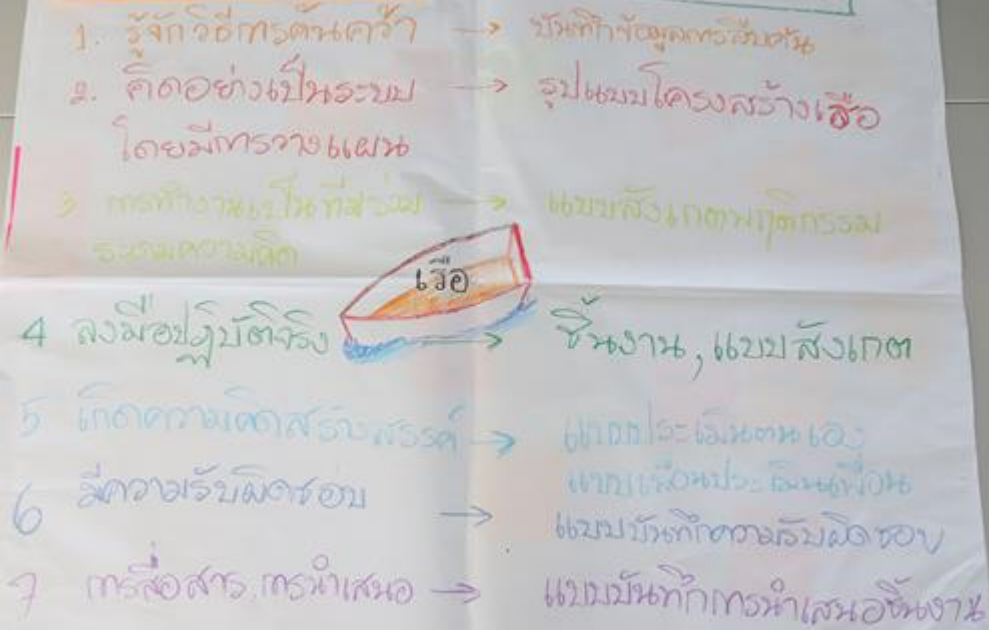 1. รู้จักวิธีการค้นคว้า → บันทึกข้อมูลการสืบค้น
2. คิดอย่างเป็นระบบ → รูปแบบโครงสร้างเรือ
โดยมีการวางแผน
3 การทำงานเป็นทีมร่วม → แบบสังเกตพฤติกรรม
ระดมความคิด
เรือ
4 ลงมือปฏิบัติจริง → ชิ้นงาน, แบบสังเกต
5 เกิดความคิดสร้างสรรค์ → แบบประเมินตนเอง
แบบเพื่อนประเมินเพื่อน
6 มีความรับผิดชอบ → แบบบันทึกความรับผิดชอบ
7 การสื่อสาร, การนำเสนอ → แบบบันทึกการนำเสนอชิ้นงาน